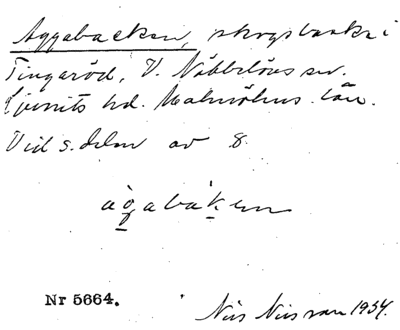 Aggabacken, skogsbacke i
Tingaröd, V. Nöbbelövs sn.
Ljunits hd. Malmöhus län.
Vid s. delen av 8
àgabákenn
Nr 5664.
Nils Nilsson 1934.